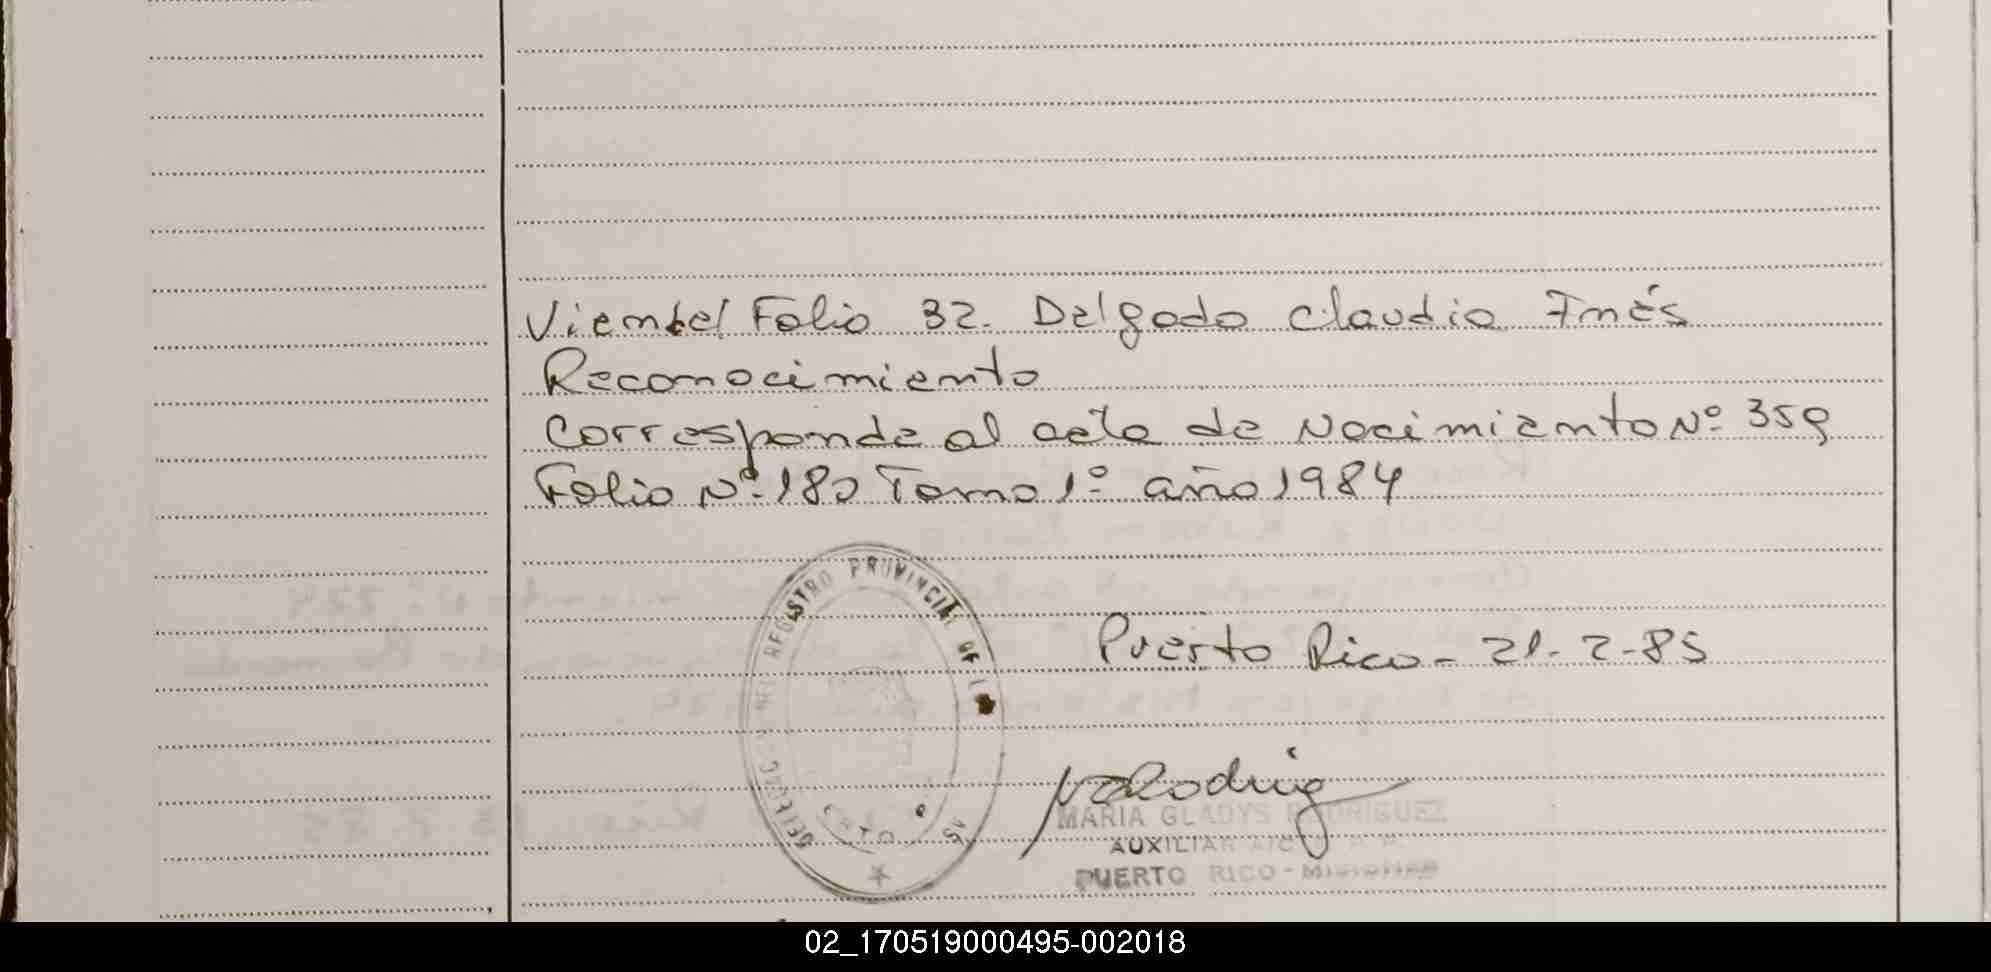 Viene del Folio 32. Delgado Claudia Inés
Reconocimiento
Corresponde al acta de Nacimiento Nº 359
Folio Nº 180 Tomo 1º año 1984
REGISTRO PROVINCIAL DE
Puerto Rico - 21-2-85
MARIA GLADYS RODRIGUEZ
AUXILIAR
PUERTO RICO - MISIONES
02_170519000495-002018